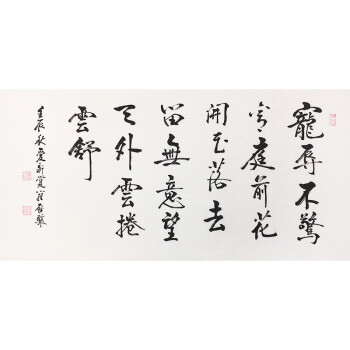 寵辱不驚
看庭前花
開花落去
留無意望
天外雲捲
雲舒
壬辰秋愛新覺羅啟驤